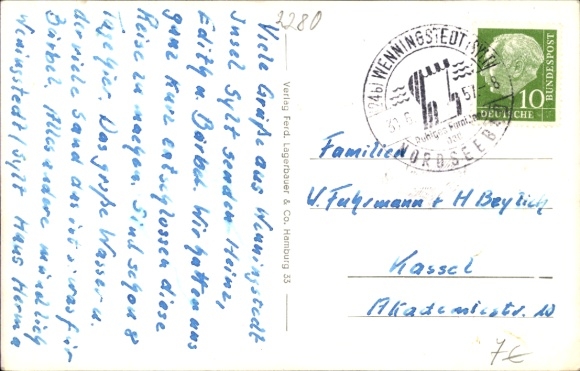 3280
Viele Grüße aus Wenningstedt
Insel Sylt senden Heinz,
Edith u Bärbel. Wir hatten uns
ganz kurz entschlossen diese
Reise zu machen. Sind schon 8
Tage hier. Das große Wasser u.
der viele Sand das ist etwas für
Bärbel. Alles andere mündlich
Wenningstedt/Sylt Hans Herma
Verlag Ferd. Lagerbauer & Co. Hamburg 33
(24b) WENNINGSTEDT (SYLT)
57.-8
NORDSEEB
10
DEUTSCHE
BUNDESPOST
Familien
V. Fuhrmann + H Beylich
Kassel
Akademiestr. 10
7€